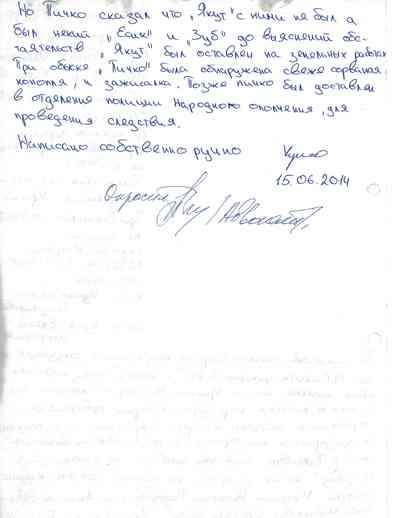 Но Пичко сказал что „Якут" с ними не был а
был некий „Ёжик" и „Зуб" до выяснений обс-
таятельств „Якут" был оставлен на земельных работах
При обыске „Пичко" была обнаружена свеже сорваная
конопля, и зажигалка. Позже пичко был доставлен
в отделение полиции Народного ополчения, для
проведения следствия.
Написано собственно ручно
15.06.2014